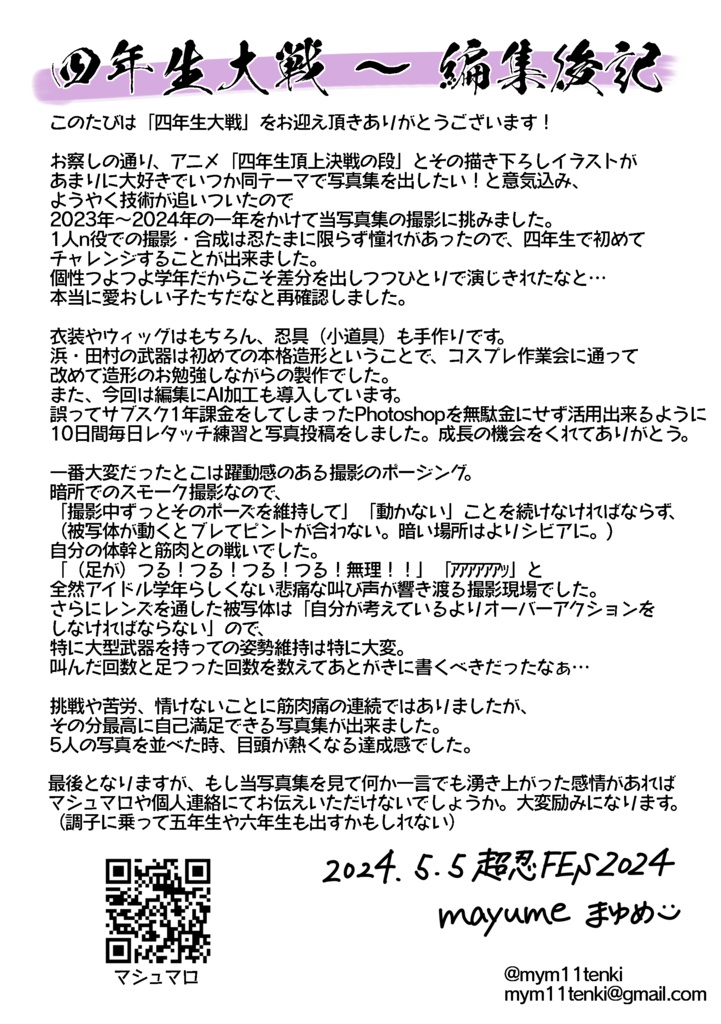 四年生大戦 〜 編集後記
このたびは「四年生大戦」をお迎え頂きありがとうございます！
お察しの通り、アニメ「四年生頂上決戦の段」とその描き下ろしイラストが
あまりに大好きでいつか同テーマで写真集を出したい！と意気込み、
ようやく技術が追いついたので
2023年〜2024年の一年をかけて当写真集の撮影に挑みました。
1人n役での撮影・合成は忍たまに限らず憧れがあったので、四年生で初めて
チャレンジすることが出来ました。
個性つよつよ学年だからこそ差分を出しつつひとりで演じきれたなと…
本当に愛おしい子たちだなと再確認しました。
衣装やウィッグはもちろん、忍具（小道具）も手作りです。
浜・田村の武器は初めての本格造形ということで、コスプレ作業会に通って
改めて造形のお勉強しながらの製作でした。
また、今回は編集にAI加工も導入しています。
誤ってサブスク1年課金をしてしまったPhotoshopを無駄金にせず活用出来るように
10日間毎日レタッチ練習と写真投稿をしました。成長の機会をくれてありがとう。
一番大変だったとこは躍動感のある撮影のポージング。
暗所でのスモーク撮影なので、
「撮影中ずっとそのポーズを維持して」「動かない」ことを続けなければならず、
（被写体が動くとブレてピントが合わない。暗い場所はよりシビアに。）
自分の体幹と筋肉との戦いでした。
「（足が）つる！つる！つる！つる！無理！！」「ｱｱｱｱｱｱｯ」と
全然アイドル学年らしくない悲痛な叫び声が響き渡る撮影現場でした。
さらにレンズを通した被写体は「自分が考えているよりオーバーアクションを
しなければならない」ので、
特に大型武器を持っての姿勢維持は特に大変。
叫んだ回数と足つった回数を数えてあとがきに書くべきだったなぁ…
挑戦や苦労、情けないことに筋肉痛の連続ではありましたが、
その分最高に自己満足できる写真集が出来ました。
5人の写真を並べた時、目頭が熱くなる達成感でした。
最後となりますが、もし当写真集を見て何か一言でも湧き上がった感情があれば
マシュマロや個人連絡にてお伝えいただけないでしょうか。大変励みになります。
（調子に乗って五年生や六年生も出すかもしれない）
2024.5.5 超忍FES2024
mayume まゆめ
マシュマロ
@mym11tenki
mym11tenki@gmail.com